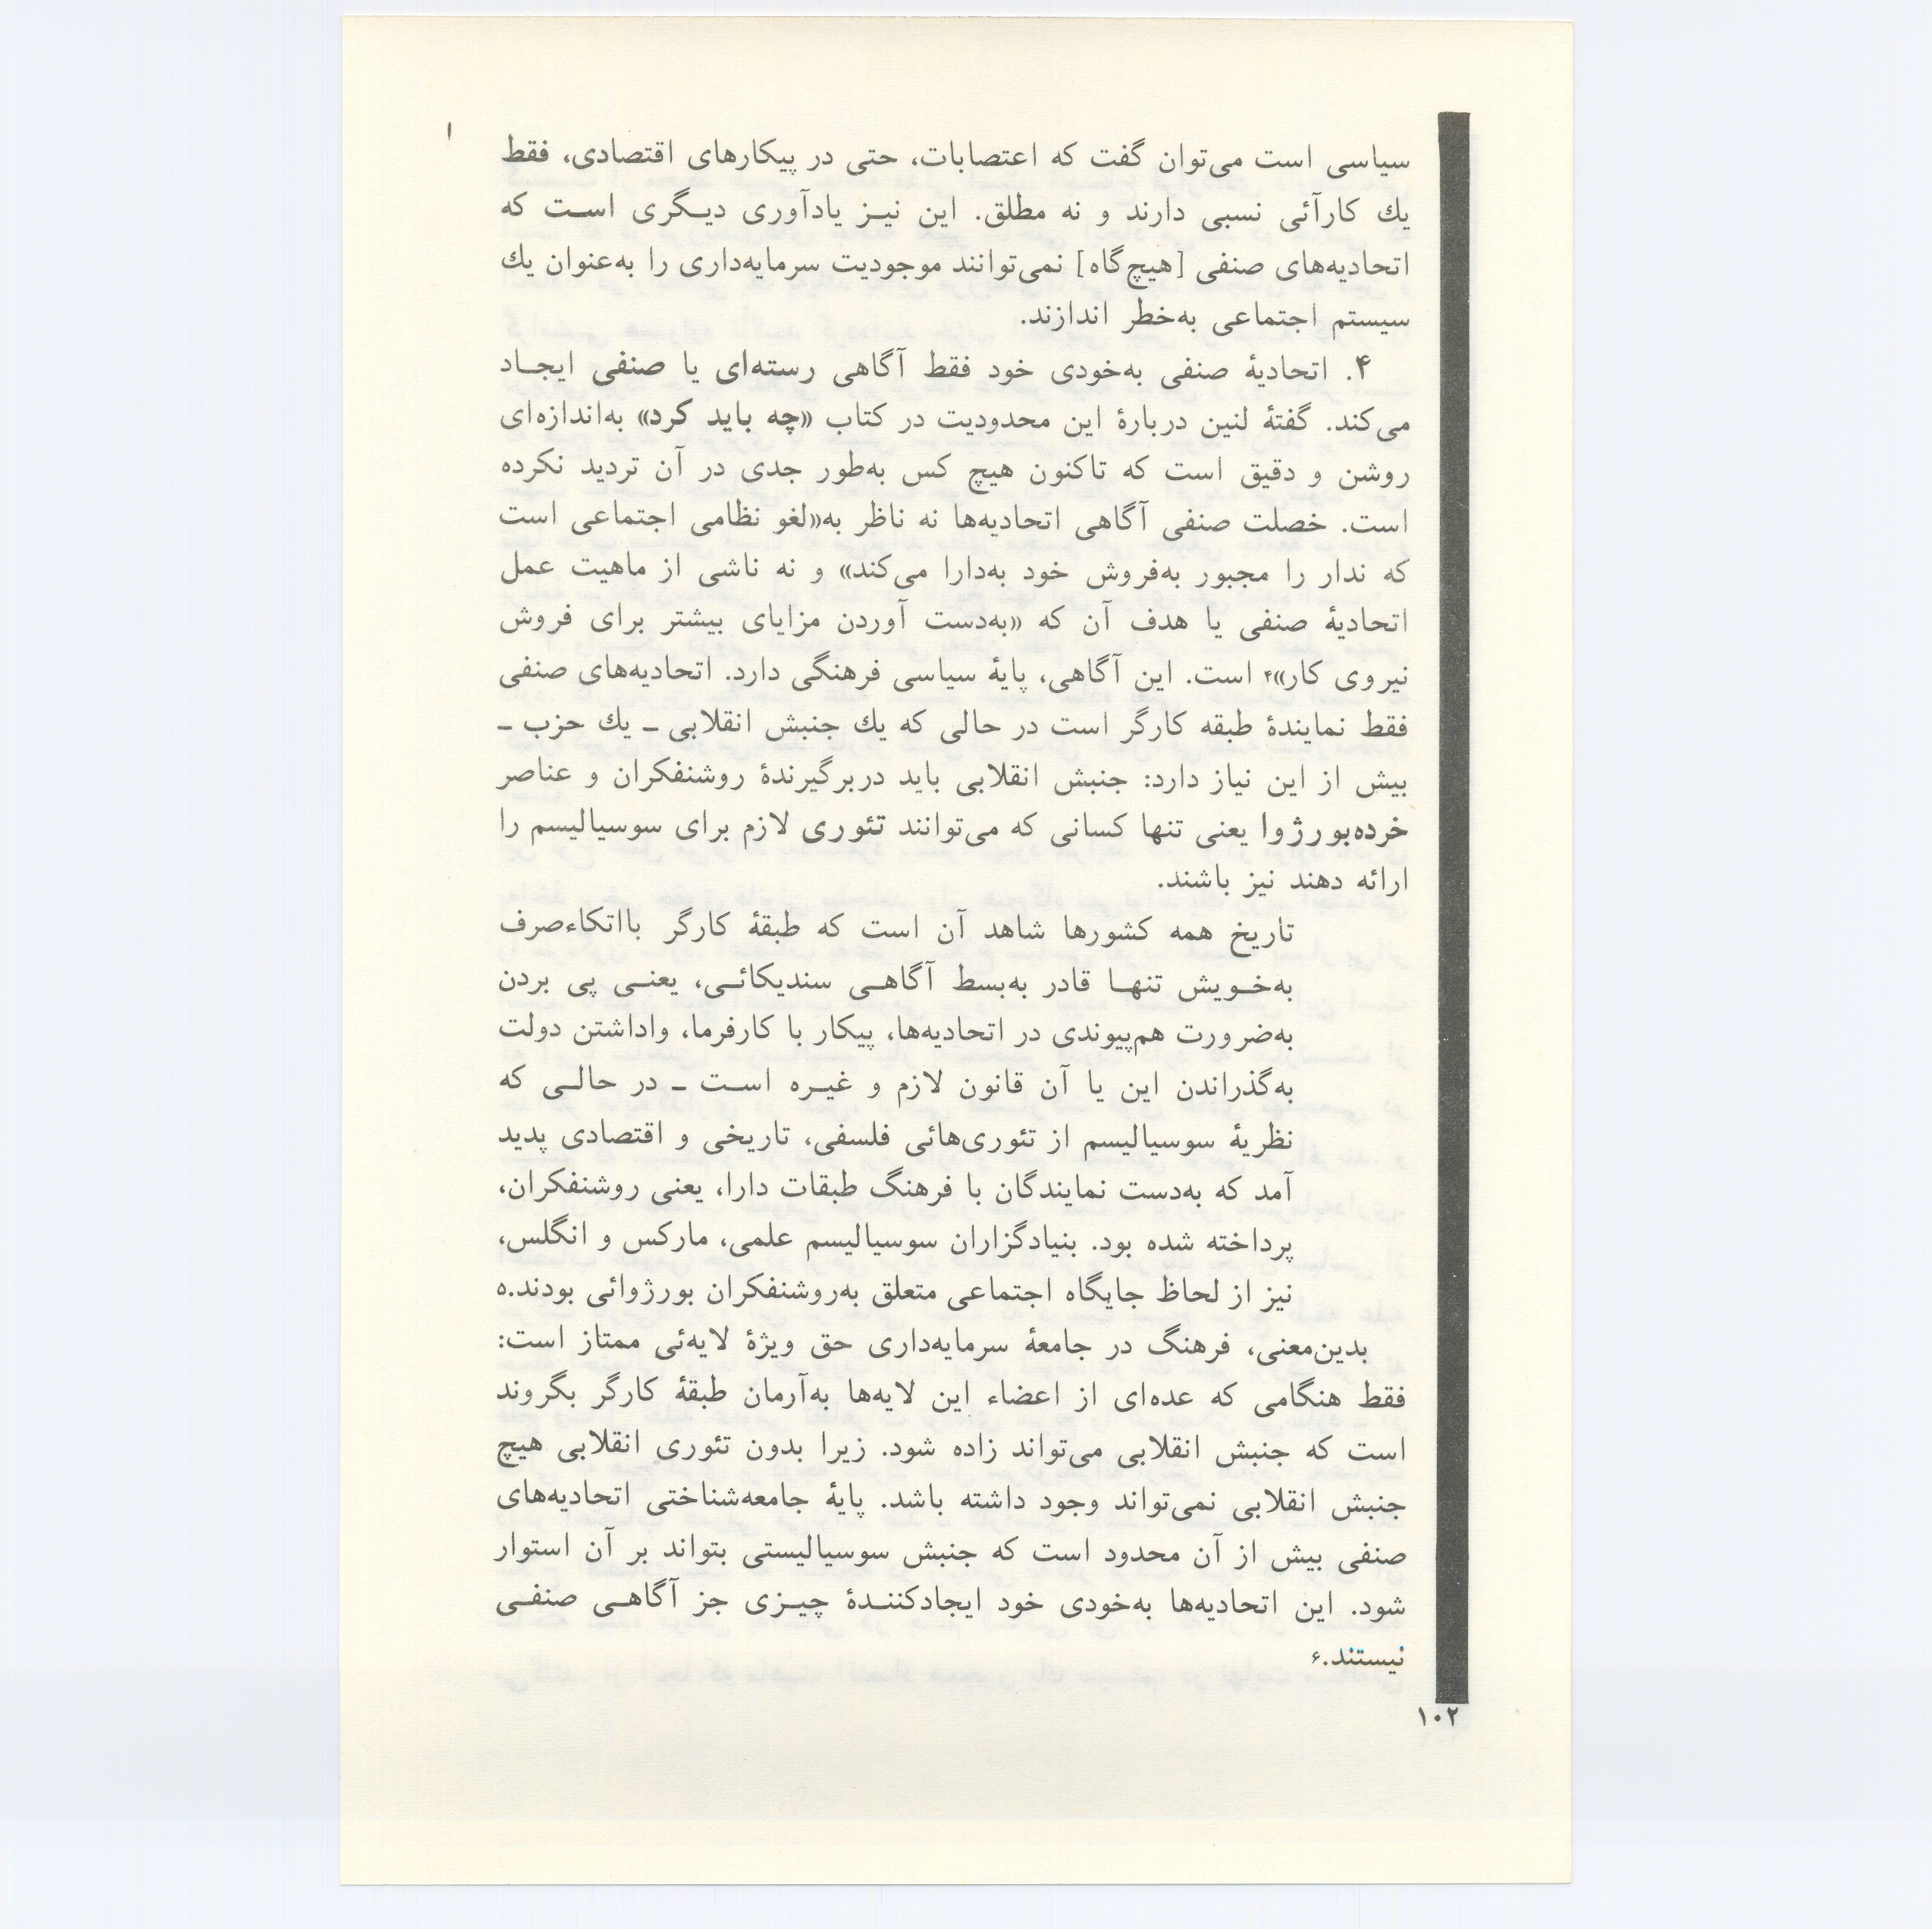 سیاسی است می‌توان گفت که اعتصابات، حتی در پیکارهای اقتصادی، فقط
یك کارآئی نسبی دارند و نه مطلق. این نیـز یادآوری دیـگری اسـت که
اتحادیه‌های صنفی [هیچ‌گاه] نمی‌توانند موجودیت سرمایه‌داری را به‌عنوان یك
سیستم اجتماعی به‌خطر اندازند.
۴. اتحادیهٔ صنفی به‌خودی خود فقط آگاهی رسته‌ای یا صنفی ایجـاد
می‌کند. گفتهٔ لنین دربارهٔ این محدودیت در کتاب «چه باید کرد» به‌اندازه‌ای
روشن و دقیق است که تاکنون هیچ کس به‌طور جدی در آن تردید نکرده
است. خصلت صنفی آگاهی اتحادیه‌ها نه ناظر به«لغو نظامی اجتماعی است
که ندار را مجبور به‌فروش خود به‌دارا می‌کند» و نه ناشی از ماهیت عمل
اتحادیهٔ صنفی یا هدف آن که «به‌دست آوردن مزایای بیشتر برای فروش
نیروی کار»۴ است. این آگاهی، پایهٔ سیاسی فرهنگی دارد. اتحادیه‌های صنفی
فقط نمایندهٔ طبقه کارگر است در حالی که یك جنبش انقلابی ـ یك حزب ـ
بیش از این نیاز دارد: جنبش انقلابی باید دربرگیرندهٔ روشنفکران و عناصر
خرده‌بورژوا یعنی تنها کسانی که می‌توانند تئوری لازم برای سوسیالیسم را
ارائه دهند نیز باشند.
تاریخ همه کشورها شاهد آن است که طبقهٔ کارگر بااتکاءصرف
به‌خـویش تنهـا قادر به‌بسط آگاهـی سندیکائـی، یعنـی پی بردن
به‌ضرورت هم‌پیوندی در اتحادیه‌ها، پیکار با کارفرما، واداشتن دولت
به‌گذراندن این یا آن قانون لازم و غیـره اسـت ـ در حالـی که
نظریهٔ سوسیالیسم از تئوری‌هائی فلسفی، تاریخی و اقتصادی پدید
آمد که به‌دست نمایندگان با فرهنگ طبقات دارا، یعنی روشنفکران،
پرداخته شده بود. بنیادگزاران سوسیالیسم علمی، مارکس و انگلس،
نیز از لحاظ جایگاه اجتماعی متعلق به‌روشنفکران بورژوائی بودند.۵
بدین‌معنی، فرهنگ در جامعهٔ سرمایه‌داری حق ویژهٔ لایه‌ئی ممتاز است:
فقط هنگامی که عده‌ای از اعضاء این لایه‌ها به‌آرمان طبقهٔ کارگر بگروند
است که جنبش انقلابی می‌تواند زاده شود. زیرا بدون تئوری انقلابی هیچ
جنبش انقلابی نمی‌تواند وجود داشته باشد. پایهٔ جامعه‌شناختی اتحادیه‌های
صنفی بیش از آن محدود است که جنبش سوسیالیستی بتواند بر آن استوار
شود. این اتحادیه‌ها به‌خودی خود ایجادکننـدهٔ چیـزی جز آگاهـی صنفـی
نیستند.۶
۱۰۲